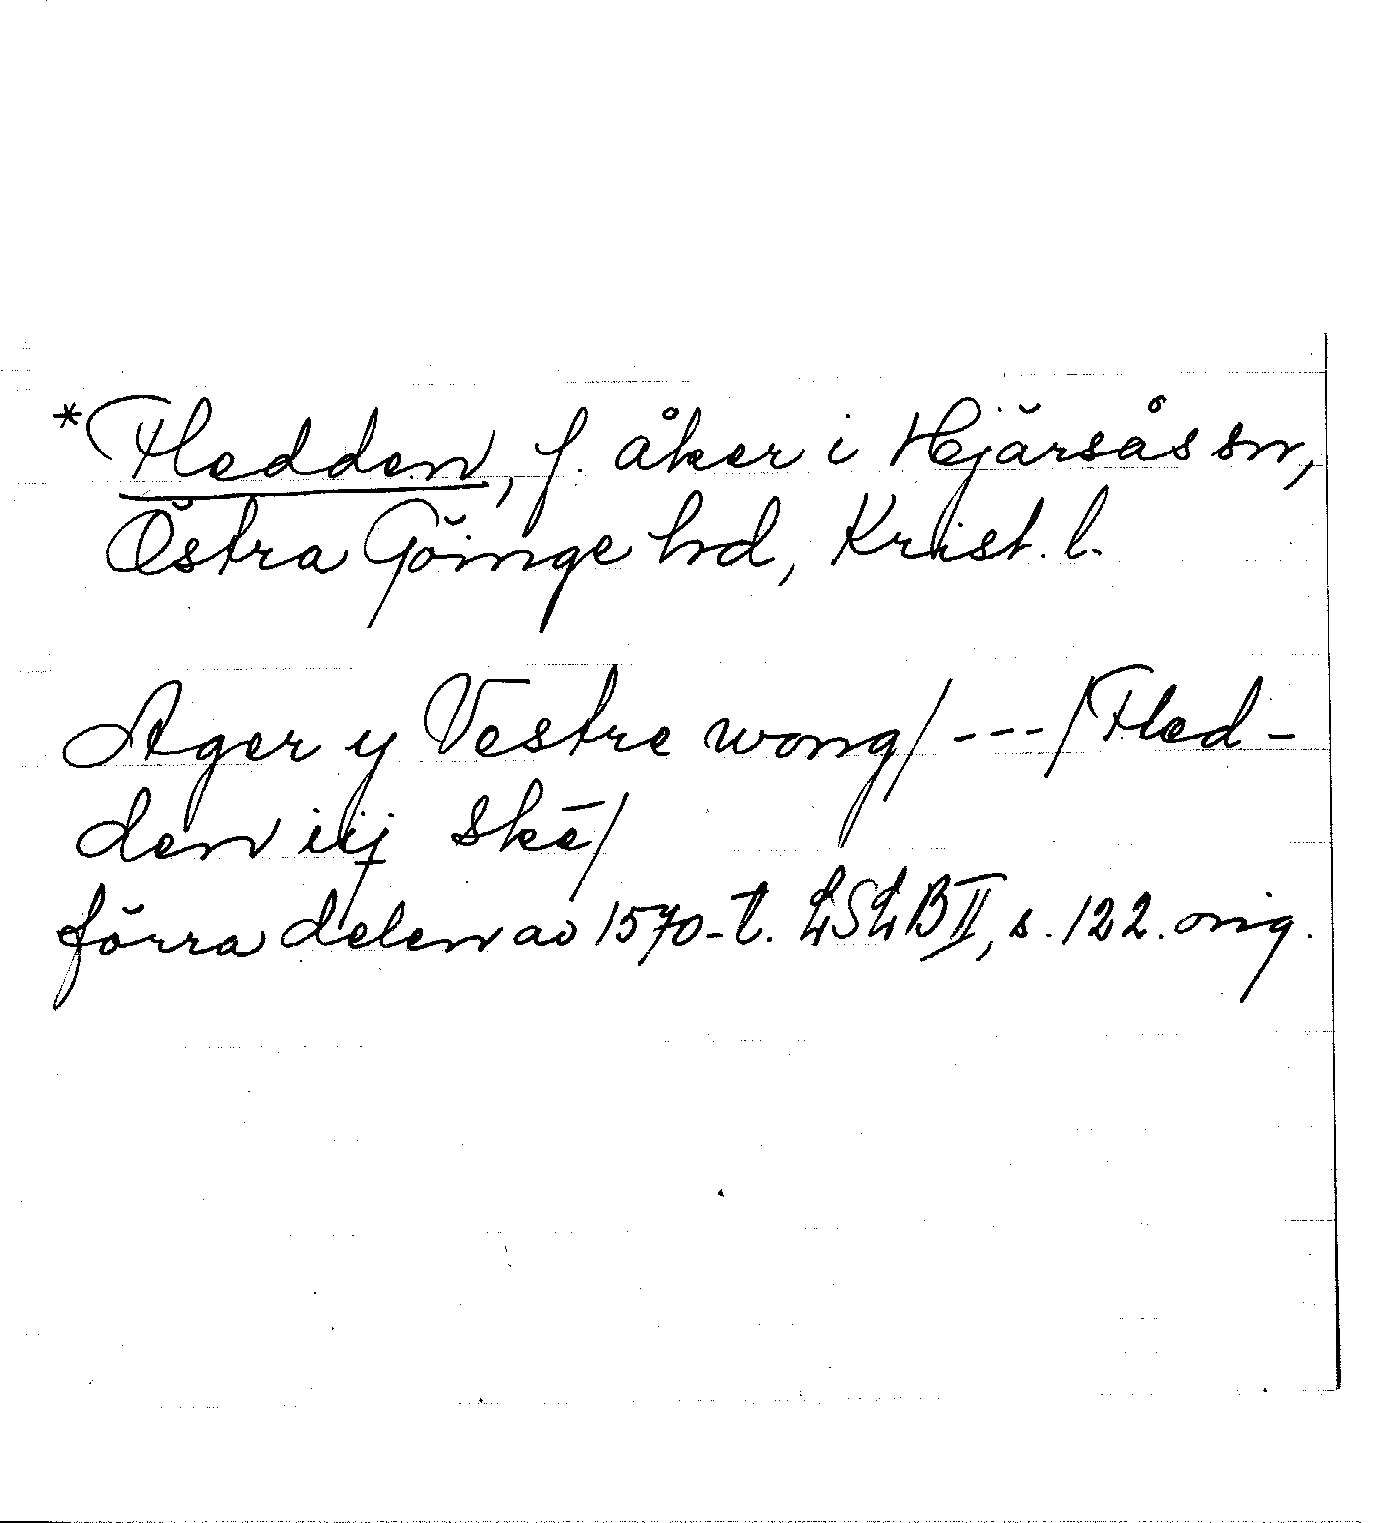 *Fledden, f. åker i Hjärsås sn,
Östra Göinge hd, Krist. l.
Ager y Vestre wong/ ---/Fled-
den iij skē/
förra delen av 1570-t. LSLB II, s. 122. orig.